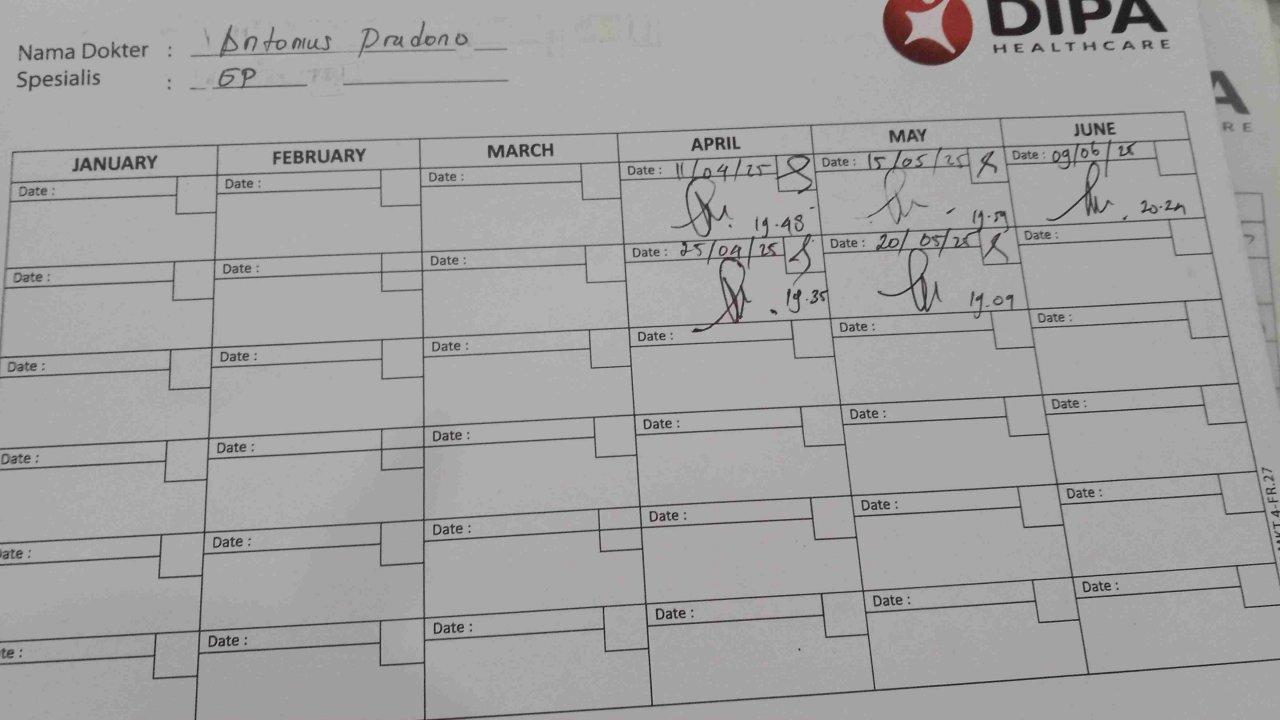 DIPA
HEALTHCARE
Nama Dokter : Antonius Pradono
Spesialis : GP
JANUARY FEBRUARY MARCH APRIL MAY JUNE
Date : Date : Date : Date : 11/04/25 Date : 15/05/25 Date : 09/06/25
19.48 19.59 20.24
Date : Date : Date : Date : 25/04/25 Date : 20/05/25 Date :
19.35 19.09
Date : Date : Date : Date : Date : Date :
Date : Date : Date : Date : Date : Date :
ate : Date : Date : Date : Date : Date :
te : Date : Date : Date : Date : Date :
A
RE
4-FR.27